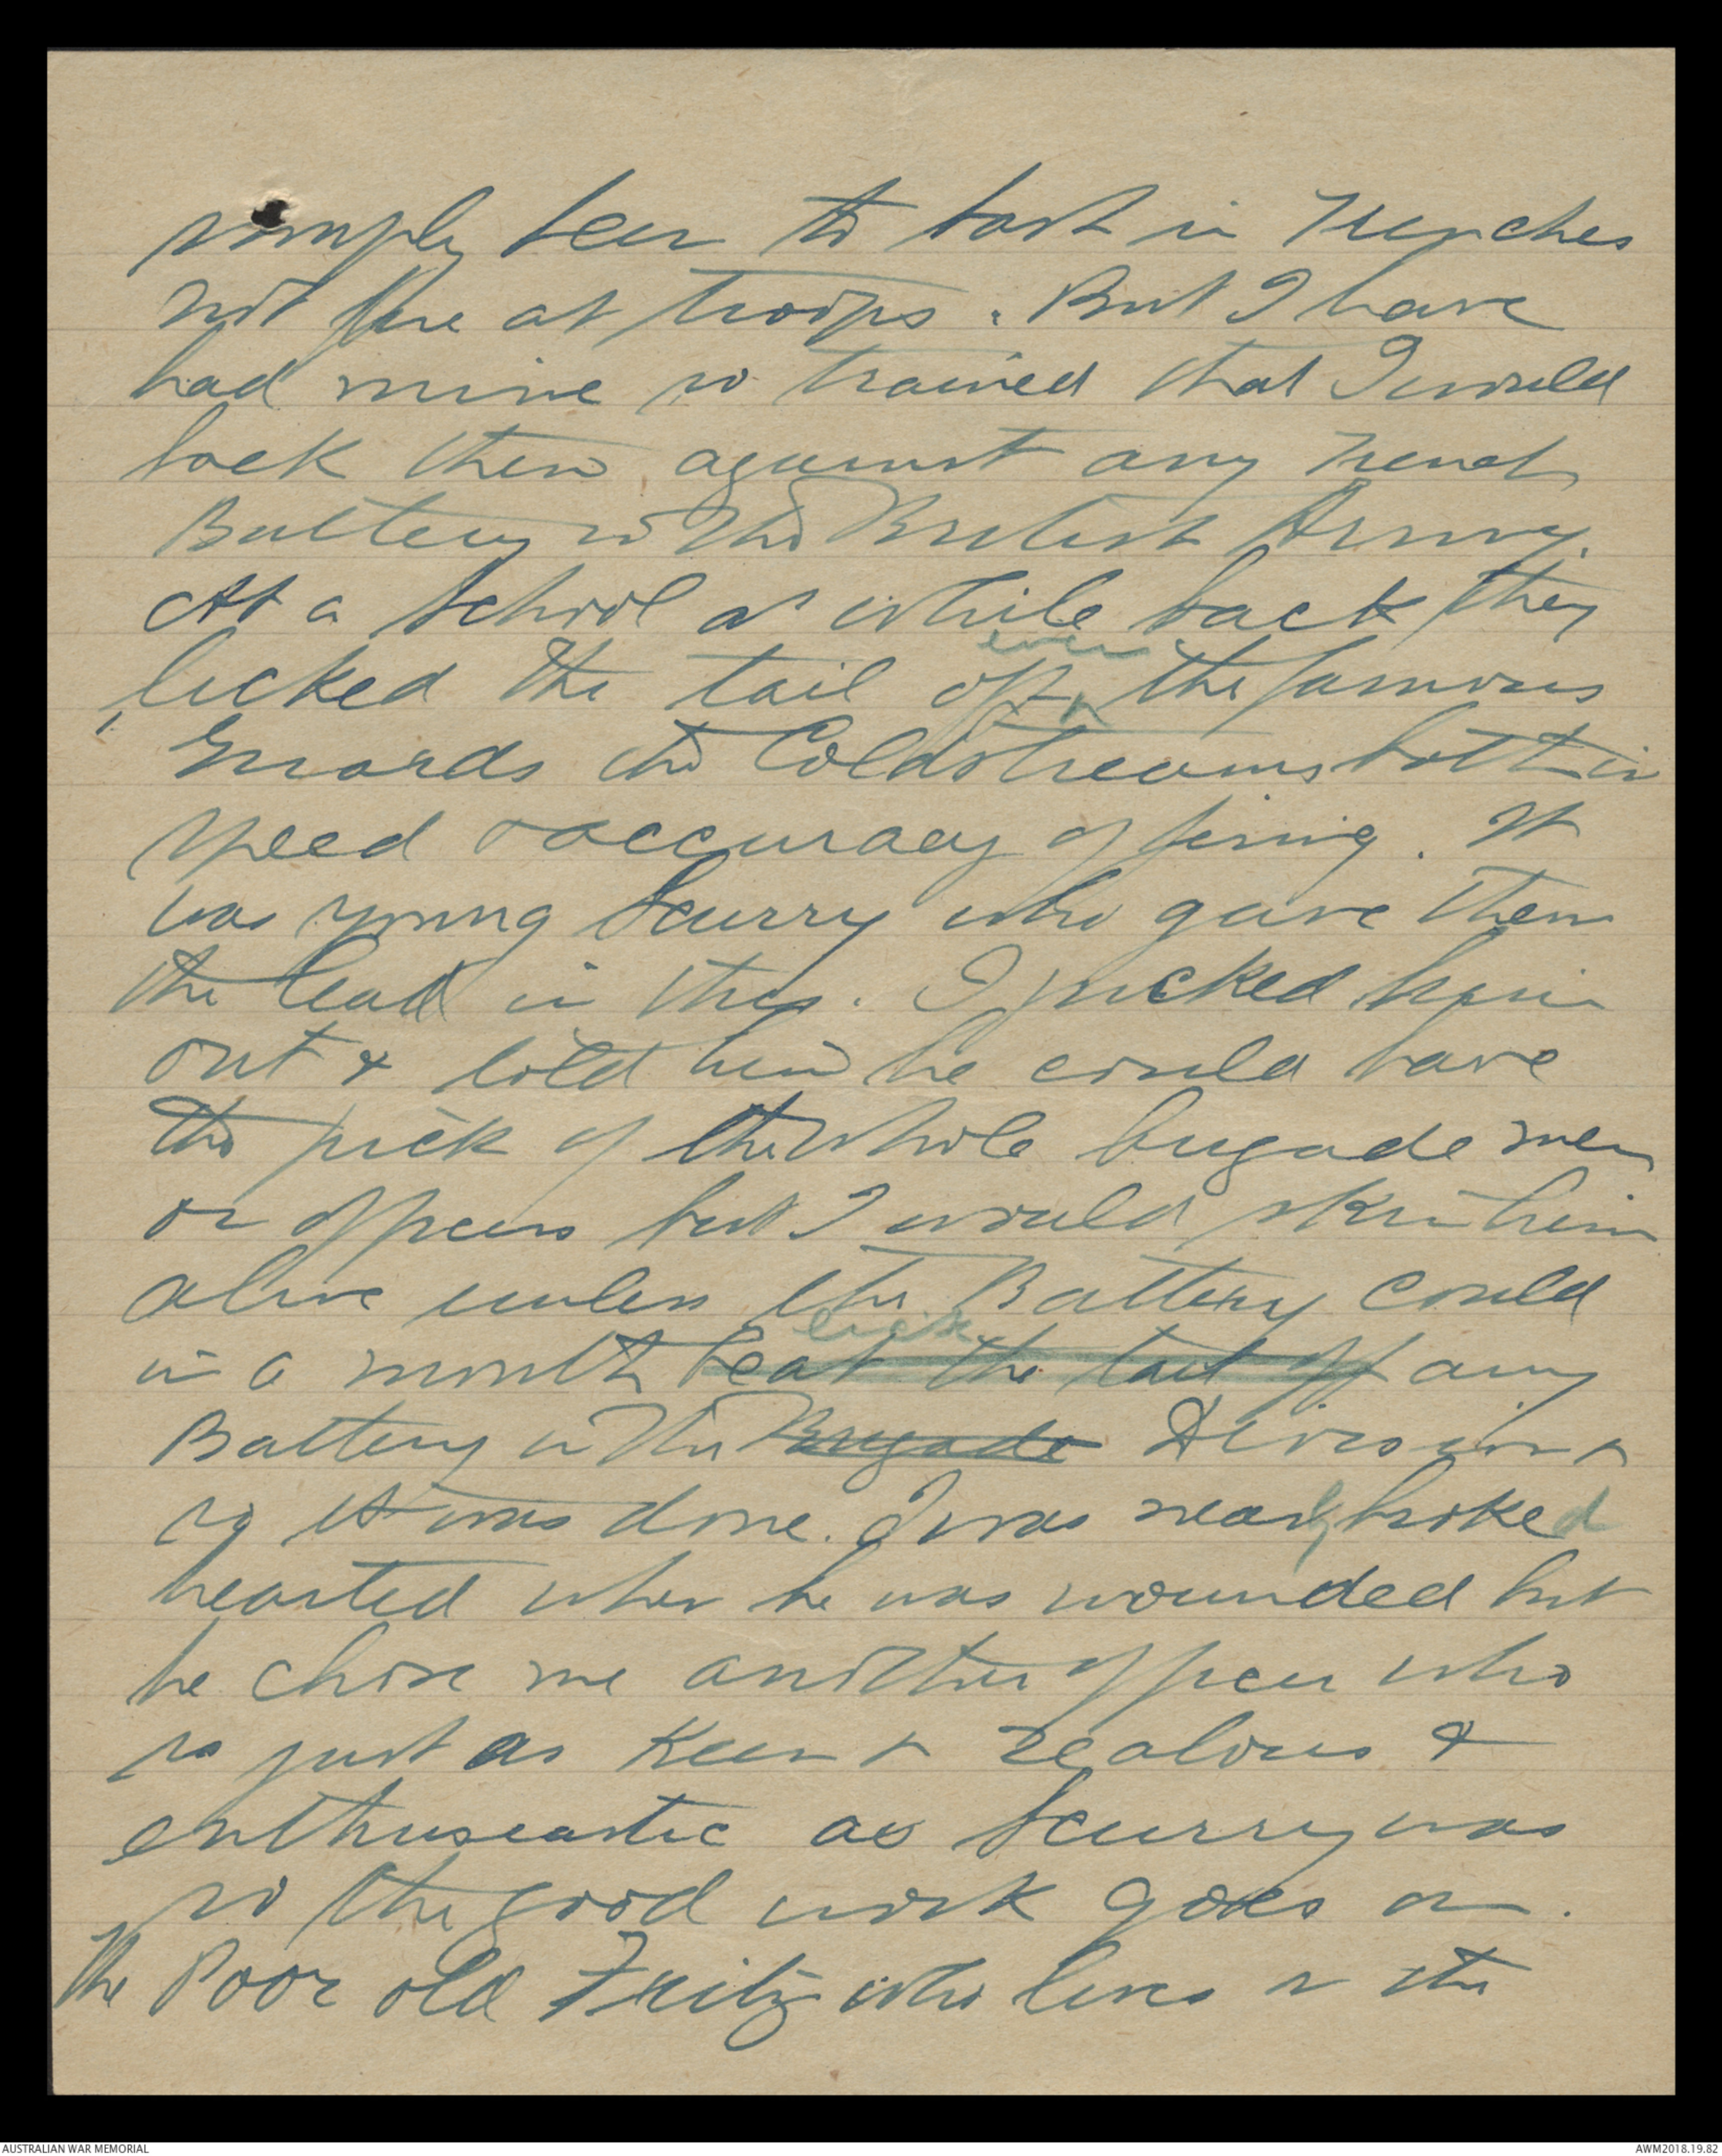 simply been to bash in trenches
not fire at troops. But I have
had mine so trained that I would
back them against any Trench
Battery in the British Army.
At a School a while back they
licked the tail off even the famous
Guards the Coldstreams both in
speed & accuracy of firing. It
was young Scurry who gave them
the lead in this. I picked him
out & told him he could have
the pick of the whole brigade men
or officers but I would skin him
alive unless the Battery could
in a month beat the tail off lick any
Battery in the Brigade Division &
so it was done. I was nearly broked
hearted when he was wounded but
he chose me another officer who
is just as keen & zealous &
enthuseastic as Scurry was
so the good work goes on.
The Poor old Fritz who lives in the
AUSTRALIAN WAR MEMORIAL
AWM2018.19.82